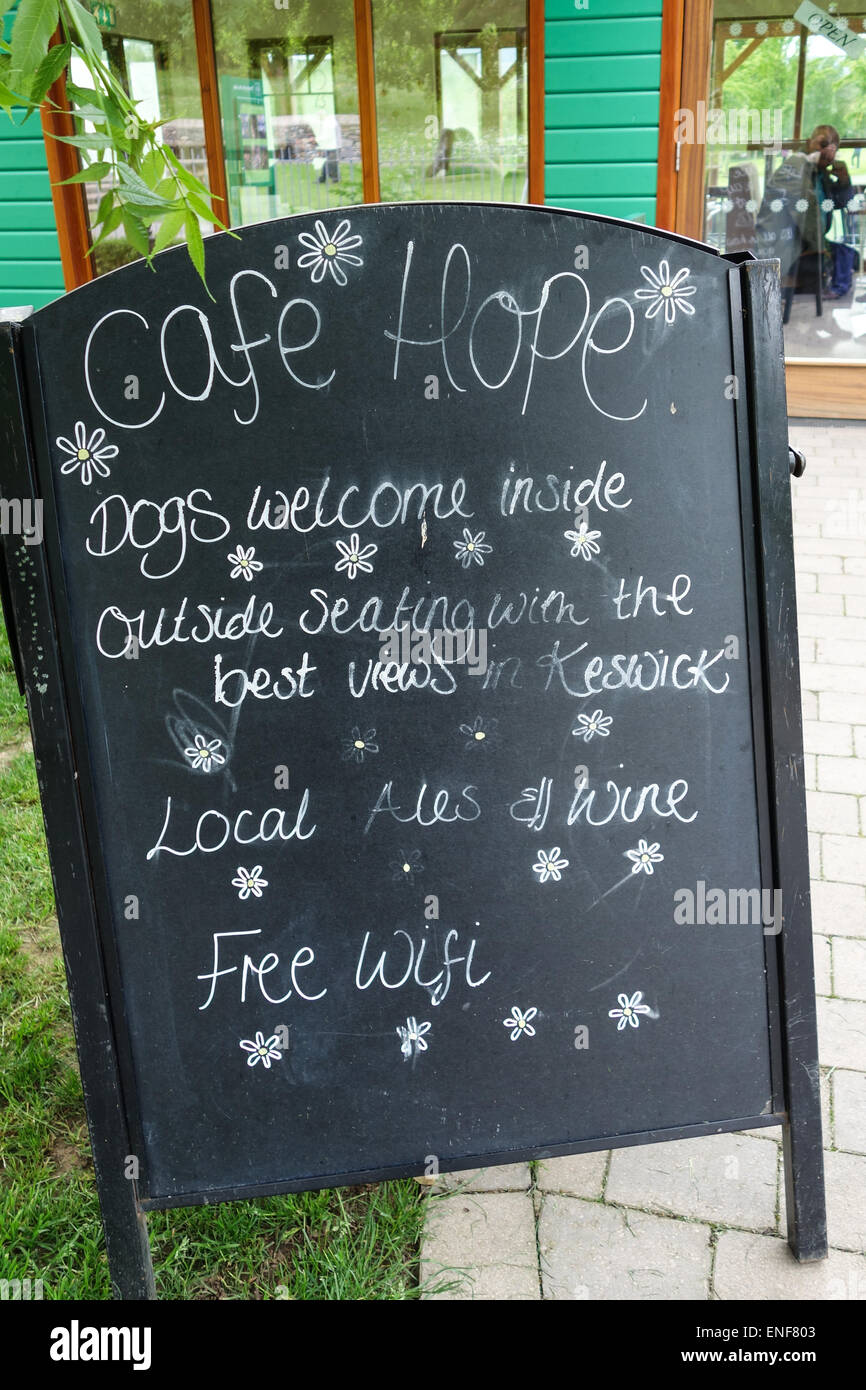 OPEN
Cafe Hope
Dogs welcome inside
Outside seating with the
best views in Keswick
Local Ales & Wine
Free Wifi
alamy
Image ID: ENF803
www.alamy.com